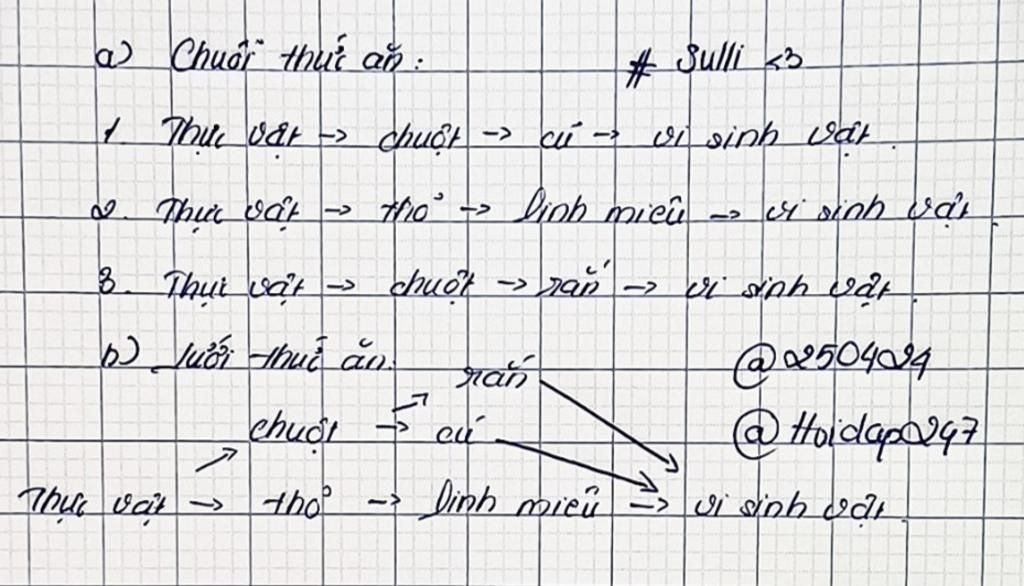 a) Chuỗi thức ăn: # Sulli <3
1. Thực vật -> chuột -> cú -> vi sinh vật.
2. Thực vật -> thỏ -> linh miêu -> vi sinh vật.
3. Thực vật -> chuột -> rắn -> vi sinh vật.
b) Lưới thức ăn: @250424
rắn
chuột -> cú @Hoidap247
Thực vật -> thỏ -> linh miêu -> vi sinh vật.